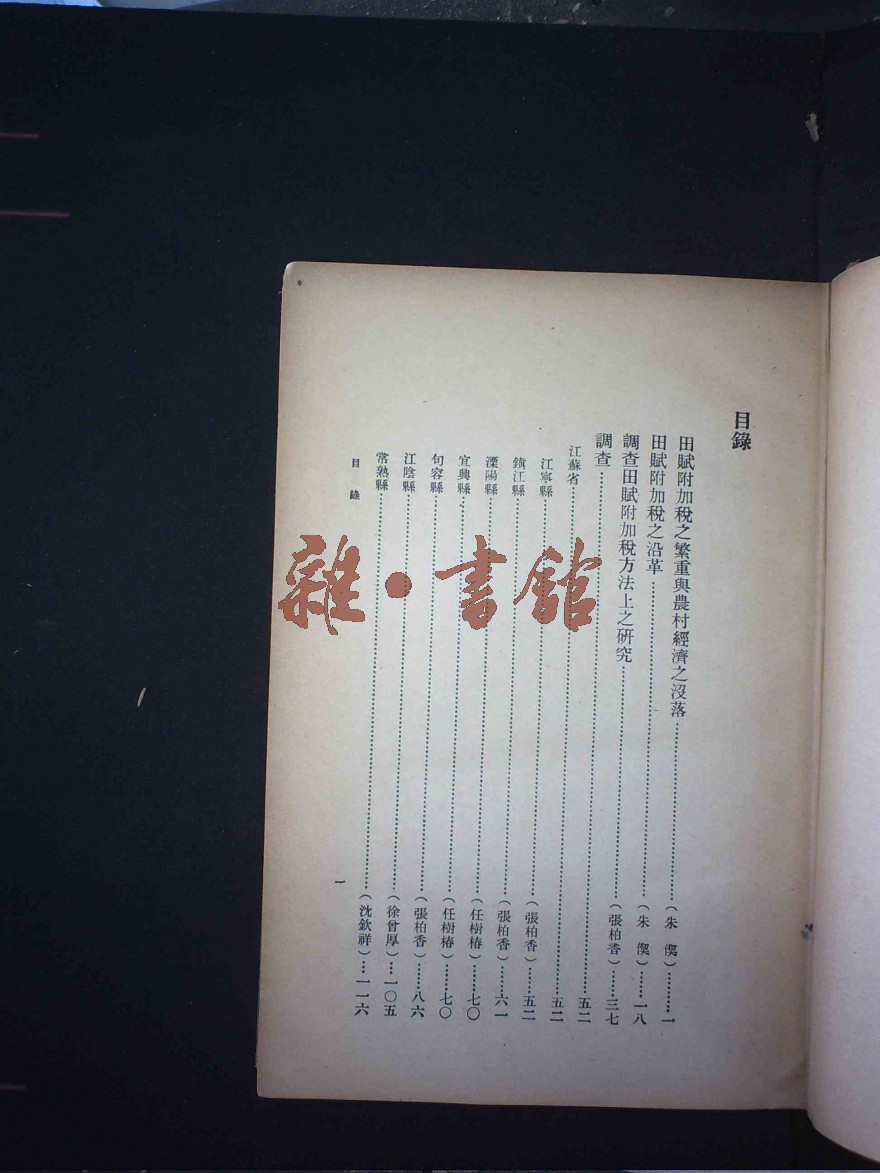 目錄
田賦附加稅之繁重與農村經濟之沒落……(朱 偰)……一
田賦附加稅之沿革……(朱 偰)……一八
調查田賦附加稅方法上之研究……(張柏香)……三七
調查……五二
江蘇省……五二
江寧縣……(張柏香)……五二
鎮江縣……(張柏香)……六一
溧陽縣……(任樹椿)……七〇
宜興縣……(任樹椿)……七〇
句容縣……(張柏香)……八六
江陰縣……(徐曾厚)……一〇五
常熟縣……(沈欽祥)……一一六
目 錄
一
雜·書館